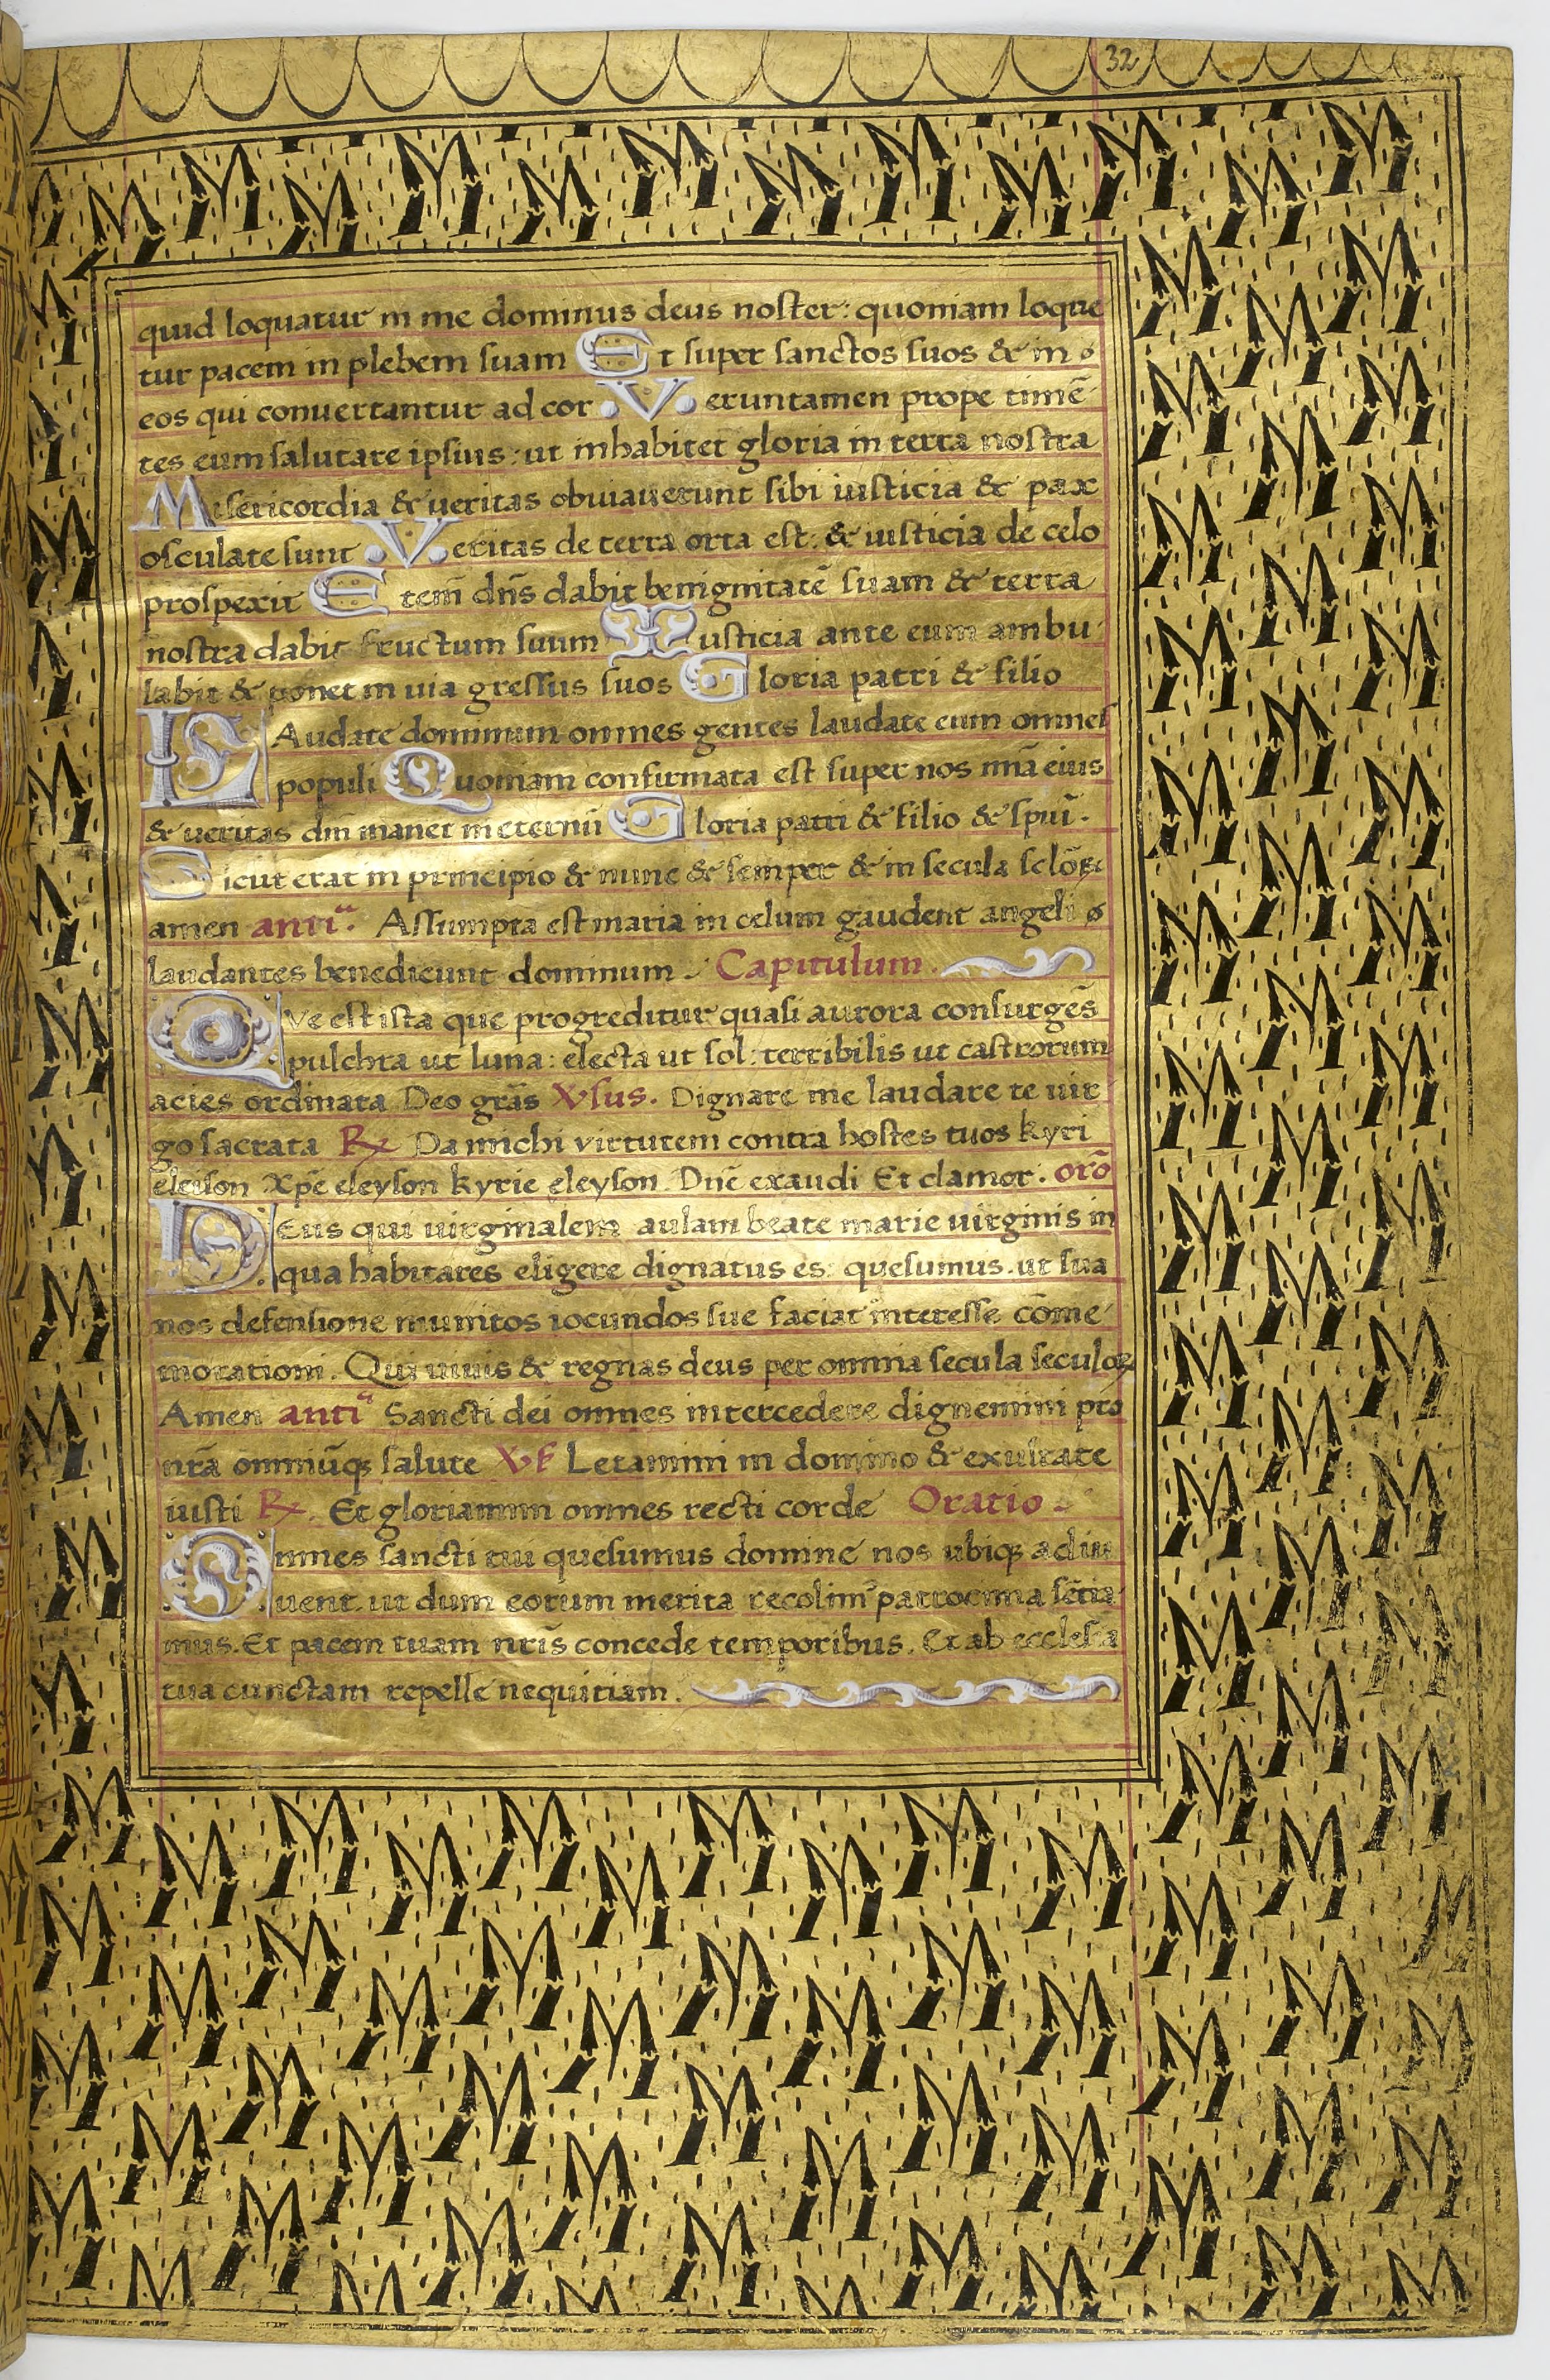 32
quid loquatur in me dominus deus noster: quoniam loque
tur pacem in plebem suam Et super sanctos suos & in
eos qui conuertantur ad cor. V. eruntamen prope timē
tes eum salutare ipsius: ut inhabitet gloria in terra nostra
Misericordia & ueritas obuiauerunt sibi iusticia & pax
osculate sunt .V. eritas de terra orta est: & iusticia de celo
prospexit Etem̄ dn̄s dabit benignitatē suam & terra
nostra dabit fructum suum Iusticia ante eum ambu
labit & ponet in uia gressus suos Gloria patri & filio
LAudate dominum omnes gentes laudate eum omnes
populi Quoniam confirmata est super nos mīa eius
& ueritas dn̄i manet in eternū Gloria patri & filio & spuī.
Sicut erat in principio & nunc & semper & in secula sclōꝝ
amen antiᵃ. Assumpta est maria in celum gaudent angeli
laudantes benedicunt dominum. Capitulum.
QVe est ista que progreditur quasi aurora consurgēs
pulchra ut luna: electa ut sol: terribilis ut castrorum
acies ordinata Deo grās Vsus. Dignare me laudare te uir
go sacrata R Da michi virtutem contra hostes tuos kyri
eleison Xpē eleyson kyrie eleyson. Dn̄e exaudi Et clamor. orō
DEus qui uirginalem aulam beate marie uirginis in
qua habitares eligere dignatus es: quesumus. ut sua
nos defensione munitos iocundos sue faciat interesse cōme
morationi. Qui uiuis & regnas deus per omnia secula seculoꝝ
Amen antiᵃ Sancti dei omnes intercedere dignemini pro
nr̄a omniūqꝫ salute V Letamini in domino & exultate
iusti R. Et gloriamini omnes recti corde Oratio
Omnes sancti tui quesumus domine nos ubiqꝫ adiu
uent. ut dum eorum merita recolim᾿ patrocinia sētia
mus. Et pacem tuam nr̄is concede temporibus. Et ab ecclesia
tua cunctam repelle nequitiam.